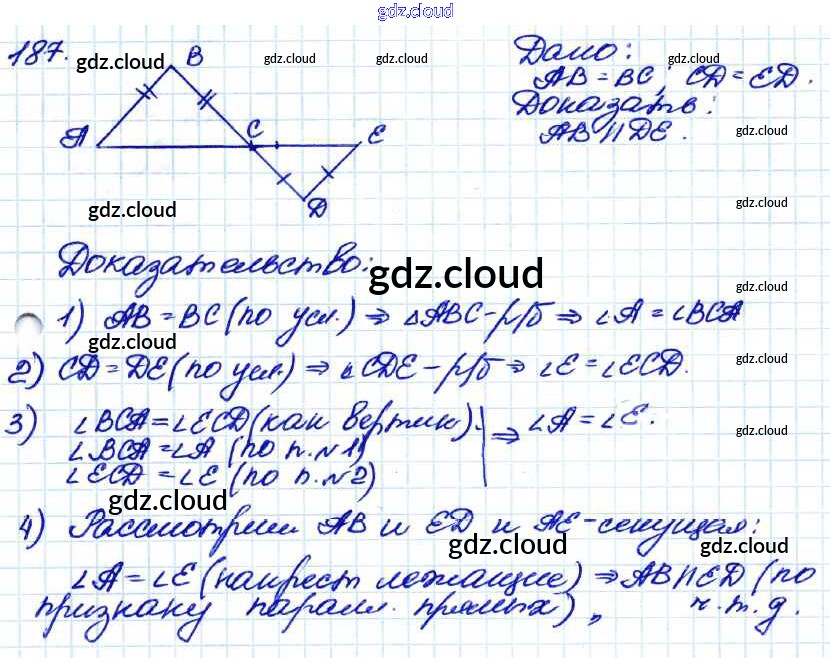 gdz.cloud
187.
gdz.cloud
B
gdz.cloud
gdz.cloud
Дано:
gdz.cloud
AB = BC; CD = ED.
Доказать:
AB || DE.
gdz.cloud
A
C
E
gdz.cloud
D
gdz.cloud
Доказательство:
gdz.cloud
gdz.cloud
1) AB = BC (по усл.) ⇒ △ABC - р/б ⇒ ∠A = ∠BCA
gdz.cloud
gdz.cloud
2) CD = DE (по усл.) ⇒ △CDE - р/б ⇒ ∠E = ∠ECD.
3) ∠BCA = ∠ECD (как вертик.) | ⇒ ∠A = ∠E.
gdz.cloud
∠BCA = ∠A (по п.№1)
∠ECD = ∠E (по п.№2)
gdz.cloud
4) Рассмотрим AB и ED и AE - секущая:
gdz.cloud
gdz.cloud
∠A = ∠E (накрест лежащие) ⇒ AB || ED (по
признаку паралл. прямых), ч.т.д.
gdz.cloud
gdz.cloud